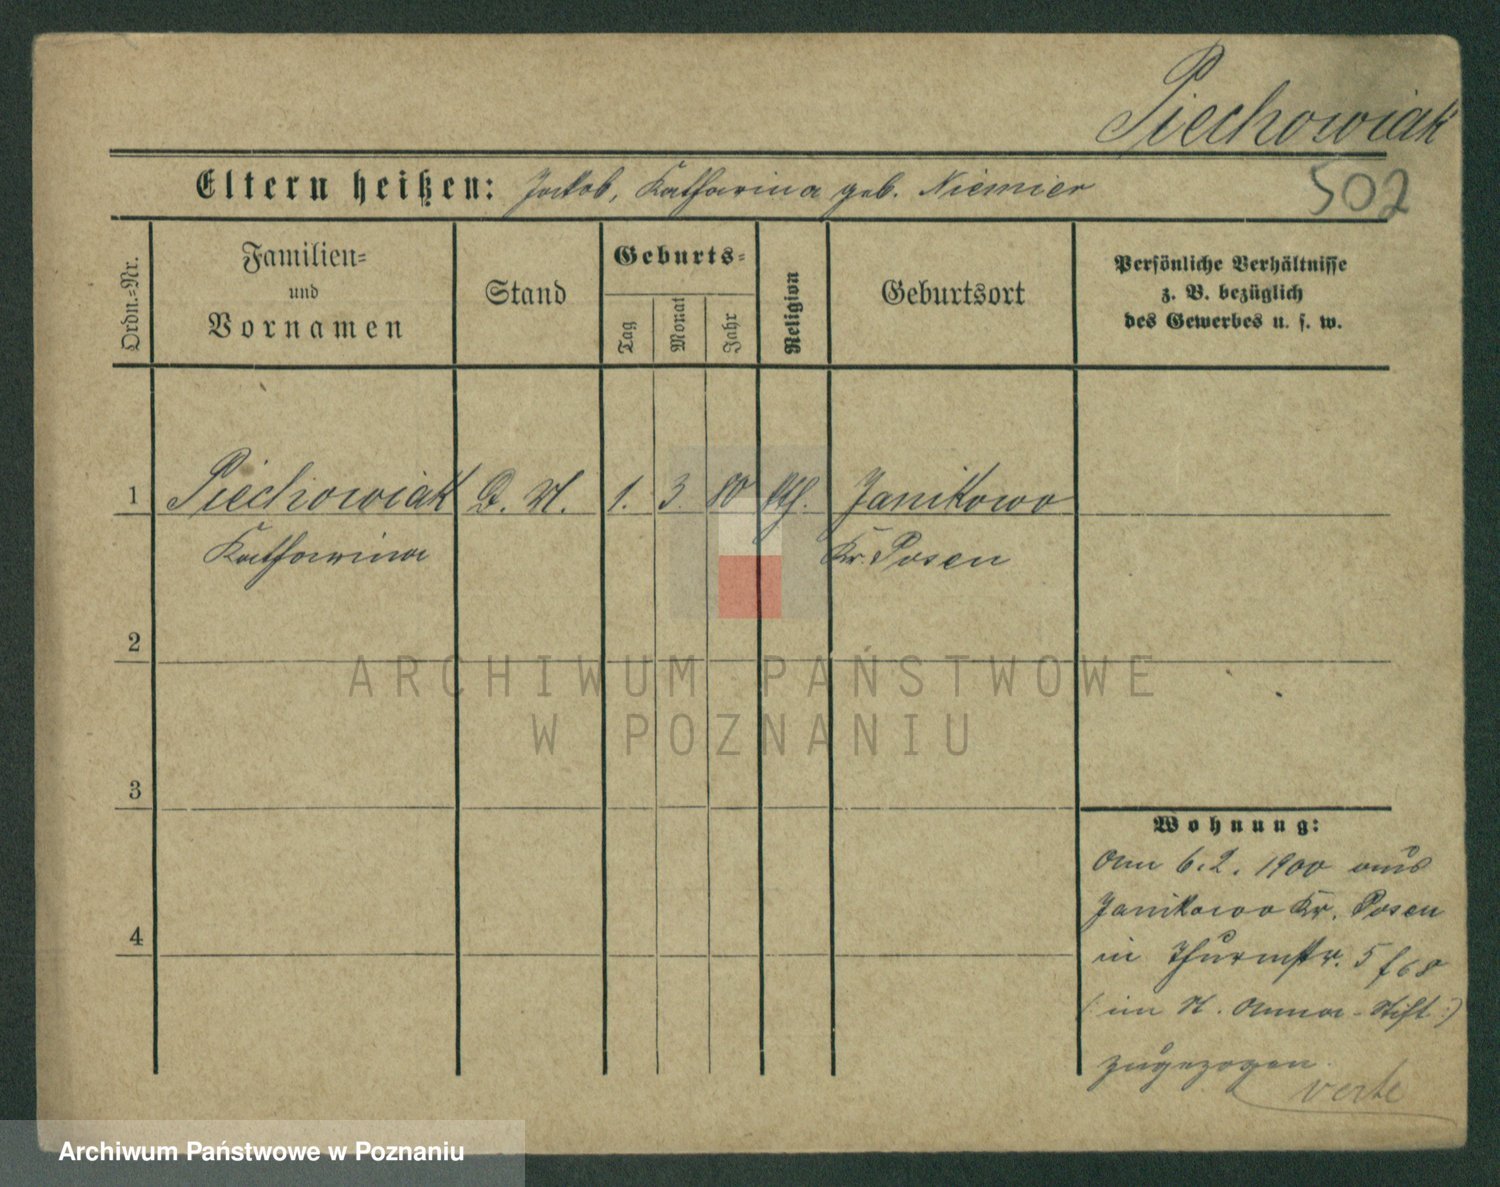 Piechowiak
502
Eltern heißen: Jakob, Katharina geb. Niemier
Ordn.-Nr.
Familien-
und
Vornamen
Stand
Geburts-
Tag
Monat
Jahr
Religion
Geburtsort
Persönliche Verhältnisse
z. B. bezüglich
des Gewerbes u. s. w.
1 Piechowiak D. M. 1. 3. 80 kth. Janikowo
Katharina Kr. Posen
2
ARCHIWUM PAŃSTWOWE
W POZNANIU
3
Wohnung:
Am 6.2. 1900 aus
Janikowo Kr. Posen
4
in Thurmstr. 5
(: im St. Anna-Stift :)
zugezogen.
verte
Archiwum Państwowe w Poznaniu